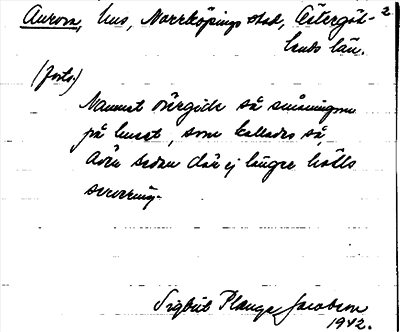 Aurora, hus, Norrköpings stad, Östergöt- 2.
lands län.
(forts.)
Namnet övergick så småningom
på huset, som kallades så,
även sedan där ej längre hölls
servering.
Sigbrit Plænge Jacobson
1942.